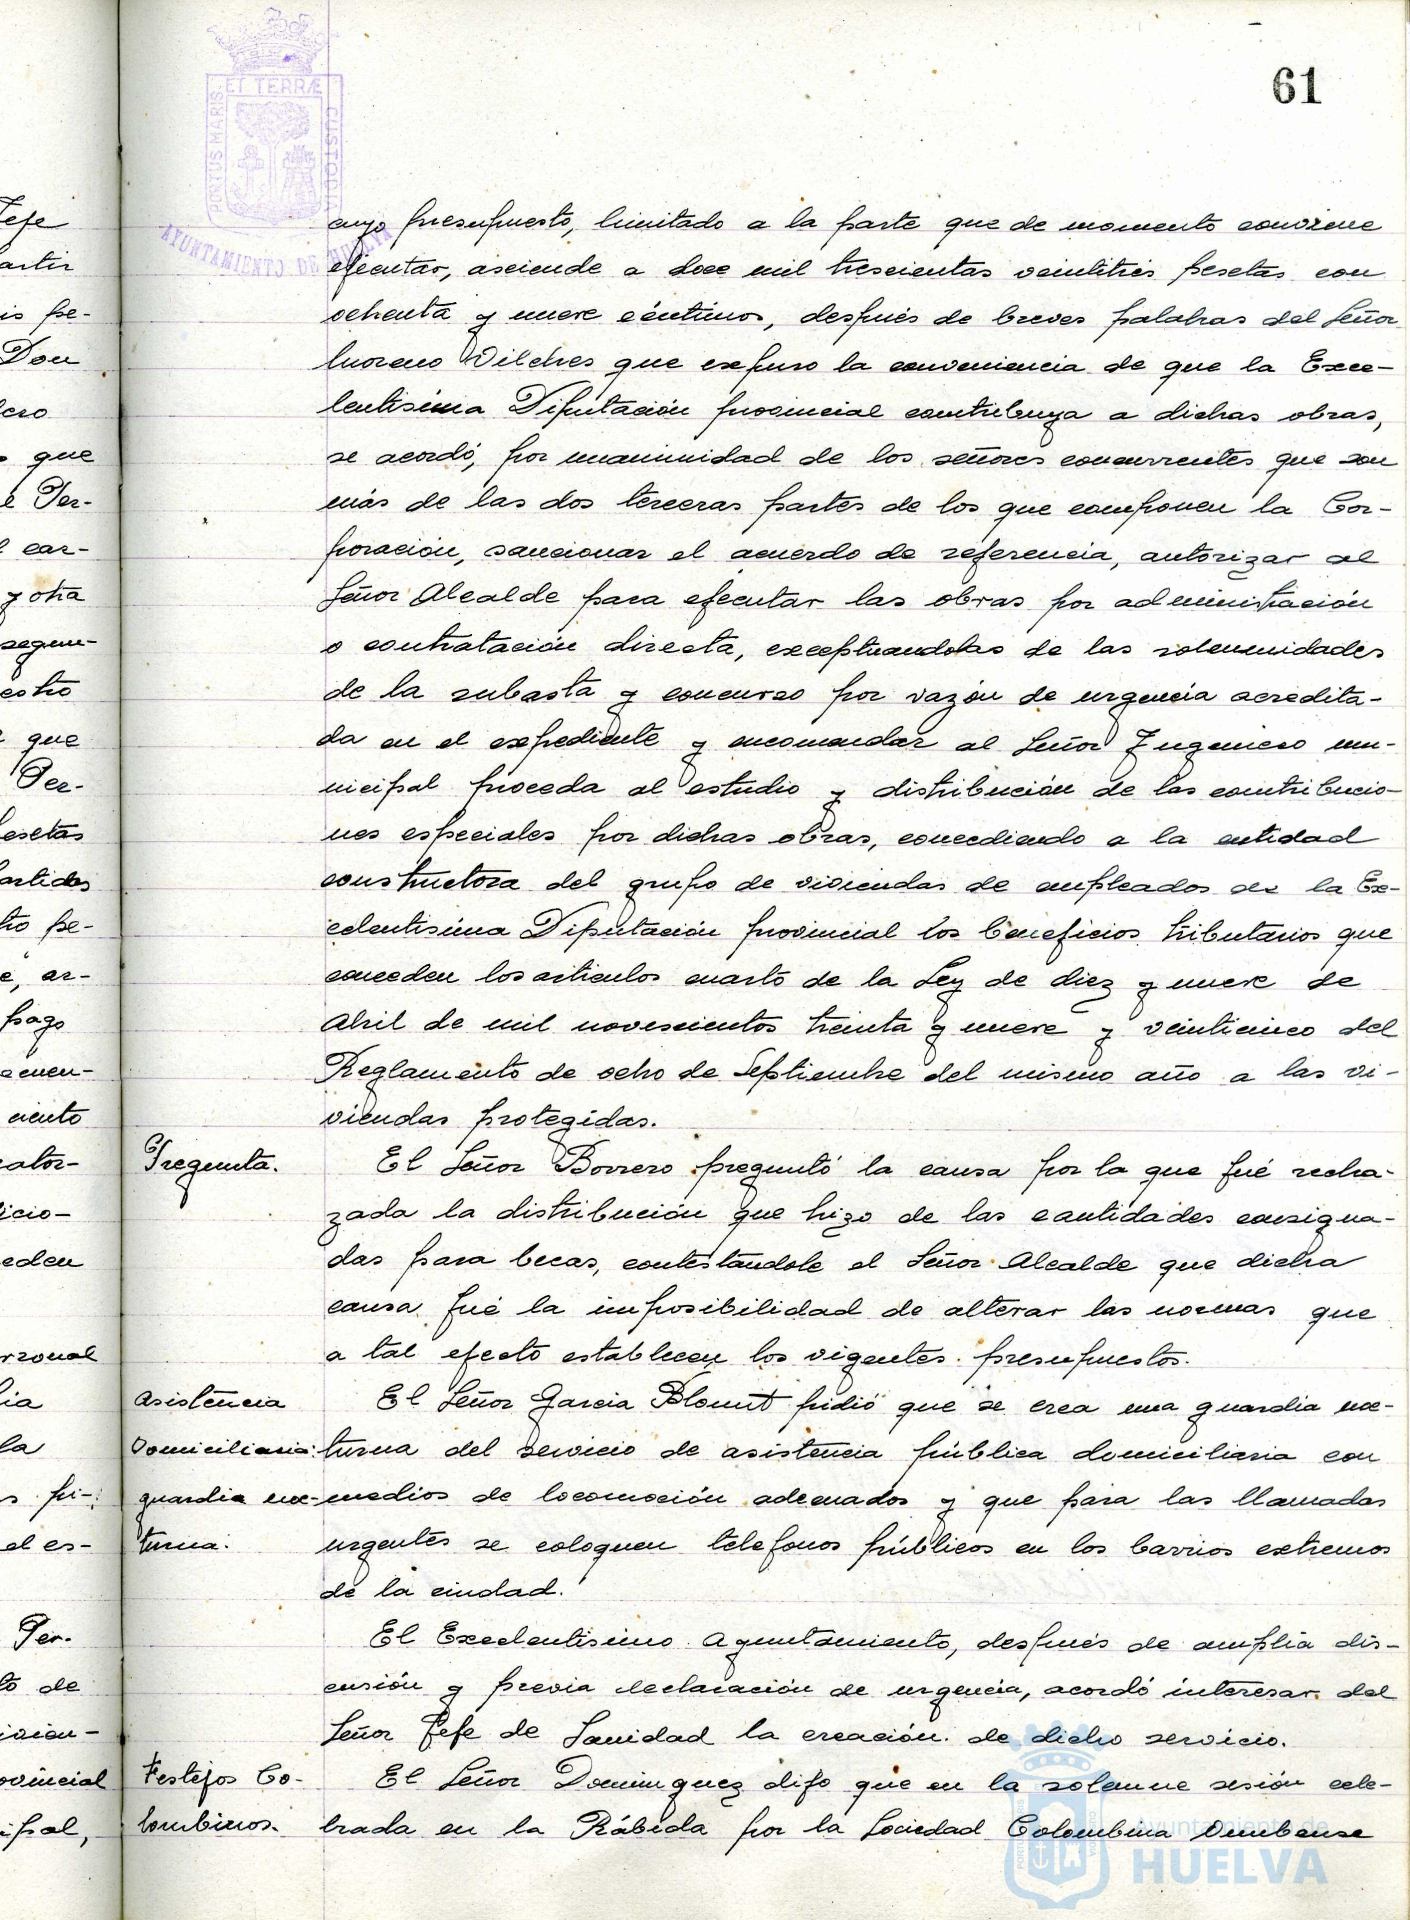 61
PORTUS MARIS ET TERRÆ CUSTODIA
AYUNTAMIENTO DE HUELVA
cuyo presupuesto, limitado a la parte que de momento conviene
ejecutar, asciende a doce mil trescientas veintitrés pesetas con
ochenta y nueve céntimos, después de breves palabras del Señor
Moreno Vilches que expuso la conveniencia de que la Exce-
lentísima Diputación provincial contribuya a dichas obras,
se acordó, por unanimidad de los señores concurrentes que son
más de las dos terceras partes de los que componen la Cor-
poración, sancionar el acuerdo de referencia, autorizar al
Señor Alcalde para ejecutar las obras por administración
o contratación directa, exceptuandolas de las solemnidades
de la subasta y concurso por razón de urgencia acredita-
da en el expediente y encomendar al Señor Ingeniero mu-
nicipal proceda al estudio y distribución de las contribucio-
nes especiales por dichas obras, concediendo a la entidad
constructora del grupo de viviendas de empleados de la Ex-
celentísima Diputación provincial los beneficios tributarios que
conceden los articulos cuarto de la Ley de diez y nueve de
Abril de mil novescientos treinta y nueve y veinticinco del
Reglamento de ocho de Septiembre del mismo año a las vi-
viendas protegidas.
Pregunta. El Señor Borrero preguntó la causa por la que fué recha-
zada la distribución que hizo de las cantidades consigna-
das para becas, contestándole el Señor Alcalde que dicha
causa fué la imposibilidad de alterar las normas que
a tal efecto establecen los vigentes presupuestos.
Asistencia El Señor Garcia Blount pidió que se crea una guardia noc-
Domiciliaria: turna del servicio de asistencia pública domiciliaria con
guardia noc- medios de locomoción adecuados y que para las llamadas
turna. urgentes se coloquen telefonos públicos en los barrios extremos
de la ciudad.
El Excelentísimo Ayuntamiento, después de amplia dis-
cusión y previa declaración de urgencia, acordó interesar del
Señor Jefe de Sanidad la creación de dicho servicio.
Festejos Co- El Señor Dominguez dijo que en la solemne sesión cele-
lombinos. brada en la Rábida por la Sociedad Colombina Onubense
Ayuntamiento de
HUELVA